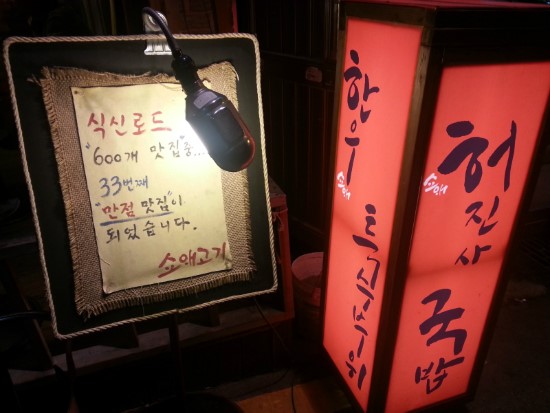 식신로드
"600개 맛집"중...
33번째
"만점 맛집"이
되었습니다.
소애고기
한우
소애
특수부위
소애
허진사
국밥